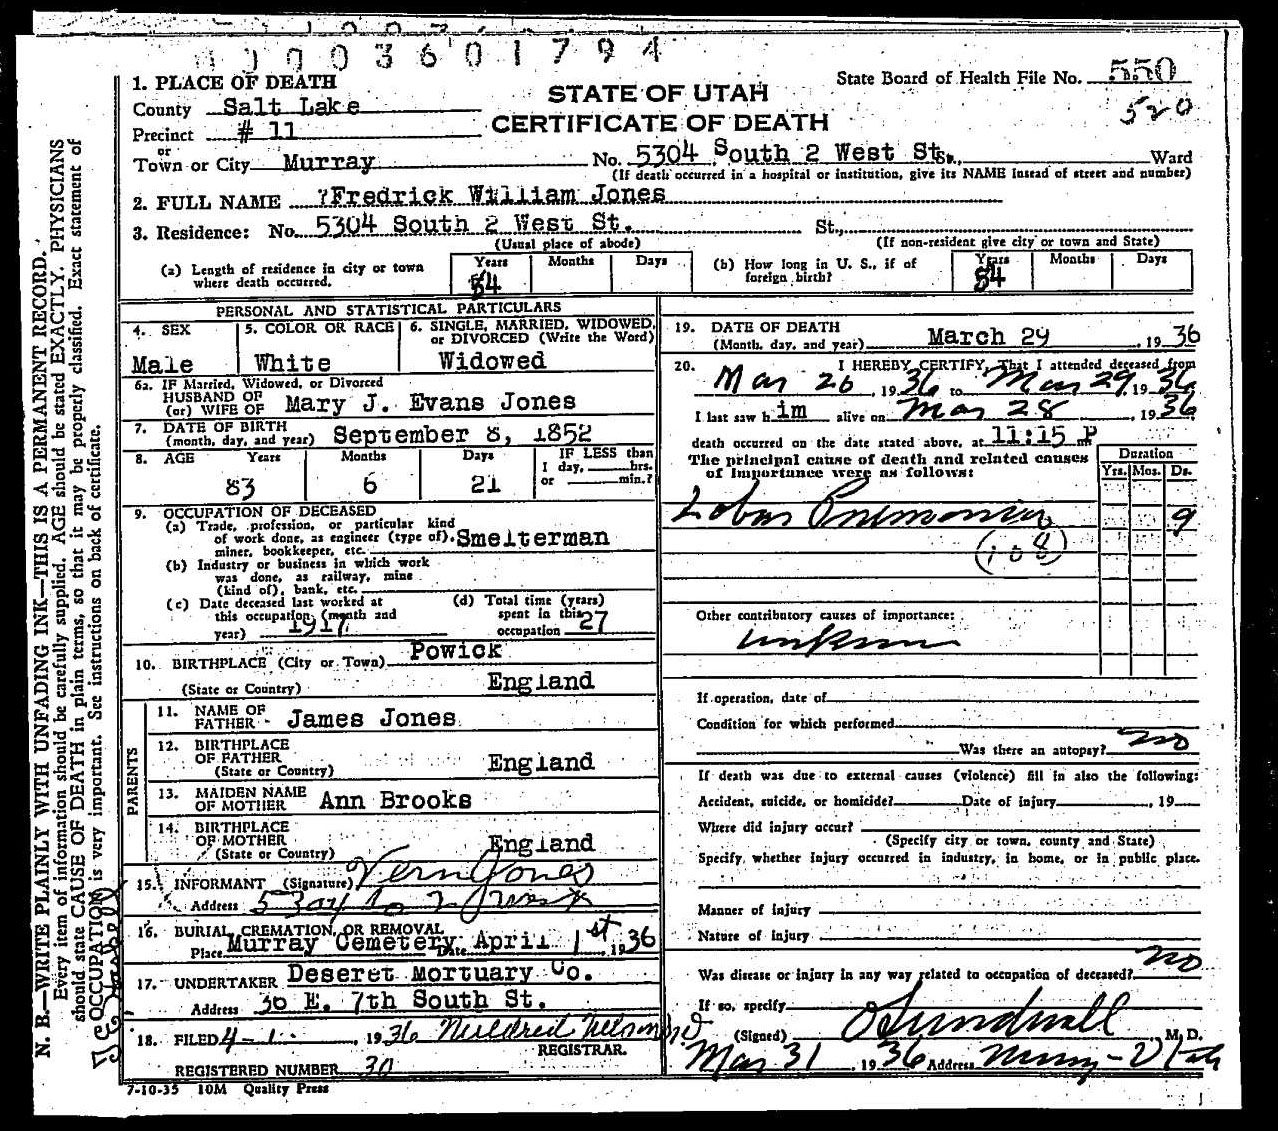 0003601794
1. PLACE OF DEATH
County Salt Lake
Precinct # 11
or
Town or City Murray
STATE OF UTAH
CERTIFICATE OF DEATH
State Board of Health File No. 550
520
No. 5304 South 2 West St. St., Ward
(If death occurred in a hospital or institution, give its NAME instead of street and number)
2. FULL NAME Fredrick William Jones
3. Residence: No. 5304 South 2 West St. St.,
(Usual place of abode) (If non-resident give city or town and State)
(a) Length of residence in city or town where death occurred. Years 54 Months Days
(b) How long in U. S., if of foreign birth? Years 54 Months Days
PERSONAL AND STATISTICAL PARTICULARS
4. SEX Male
5. COLOR OR RACE White
6. SINGLE, MARRIED, WIDOWED, or DIVORCED (Write the Word) Widowed
6a. IF Married, Widowed, or Divorced
HUSBAND OF
(or) WIFE OF Mary J. Evans Jones
7. DATE OF BIRTH
(month, day, and year) September 8, 1852
8. AGE Years 83 Months 6 Days 21 IF LESS than 1 day, hrs. or min.?
9. OCCUPATION OF DECEASED
(a) Trade, profession, or particular kind
of work done, as engineer (type of), Smelterman
miner, bookkeeper, etc.
(b) Industry or business in which work
was done, as railway, mine
(kind of), bank, etc.
(c) Date deceased last worked at this occupation (month and year) 1917
(d) Total time (years) spent in this occupation 27
10. BIRTHPLACE (City or Town) Powick
(State or Country) England
PARENTS
11. NAME OF FATHER - James Jones
12. BIRTHPLACE OF FATHER
(State or Country) England
13. MAIDEN NAME OF MOTHER Ann Brooks
14. BIRTHPLACE OF MOTHER
(State or Country) England
15. INFORMANT (Signature) Vern Jones
Address So 2 West
16. BURIAL, CREMATION, OR REMOVAL
Place Murray Cemetery Date April 1st 1936
17. UNDERTAKER Deseret Mortuary Co.
Address 30 E. 7th South St.
18. FILED 4-1- , 1936 Mildred Nelson
REGISTRAR.
REGISTERED NUMBER 30
7-10-35 10M Quality Press
19. DATE OF DEATH
(Month, day, and year) March 29 , 1936
20. I HEREBY CERTIFY, That I attended deceased from
Mar 26 , 1936 to Mar 29, 1936
I last saw him alive on Mar 28 , 1936
death occurred on the date stated above, at 11:15 P m
The principal cause of death and related causes
of importance were as follows:
Duration
Yrs. Mos. Ds.
Lobar Pnemonia 9
(108)
Other contributory causes of importance:
unknown
If operation, date of
Condition for which performed
Was there an autopsy? no
If death was due to external causes (violence) fill in also the following:
Accident, suicide, or homicide? Date of injury , 19
Where did injury occur?
(Specify city or town, county and State)
Specify, whether injury occurred in industry, in home, or in public place.
Manner of injury
Nature of injury
Was disease or injury in any way related to occupation of deceased? no
If so, specify
(Signed) Sundwall M. D.
Mar 31 , 1936 Address Murray - Utah
N. B.—WRITE PLAINLY WITH UNFADING INK—THIS IS A PERMANENT RECORD.
Every item of information should be carefully supplied. AGE should be stated EXACTLY. PHYSICIANS
should state CAUSE OF DEATH in plain terms, so that it may be properly classified. Exact statement of
OCCUPATION is very important. See instructions on back of certificate.